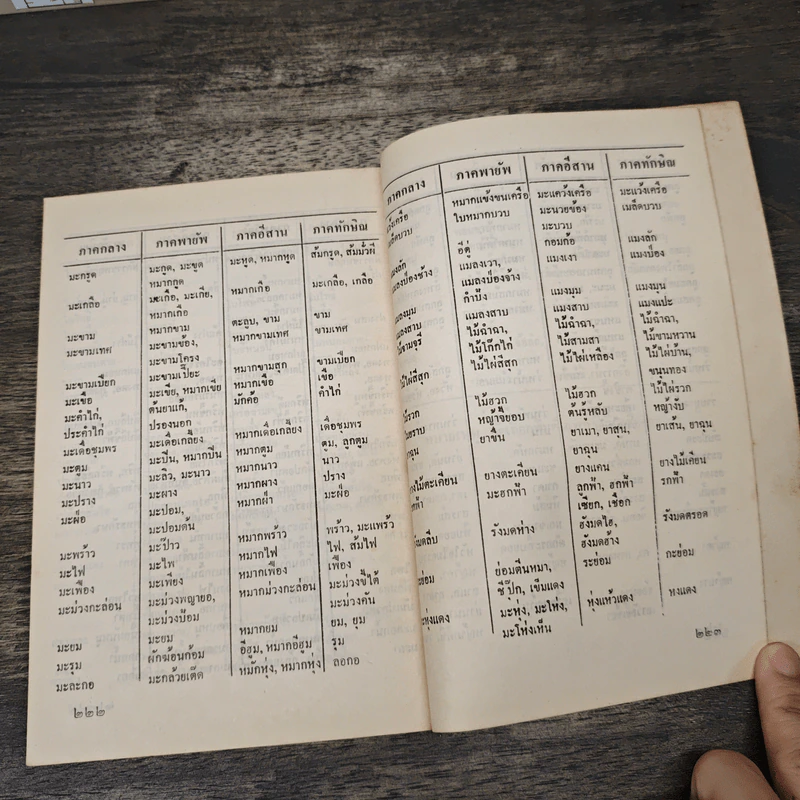 ภาคกลาง ภาคพายัพ ภาคอีสาน ภาคทักษิณ
มะกรูด มะกูด, มะขูด มะหูด, หมากหูด ส้มกรูด, ส้มมั่วผี
หมากกูด
มะเกลือ มะเกือ, มะเกีย, หมากเกือ มะเกลือ, เกลือ
หมากเกือ
มะขาม หมากขาม ตะลูบ, ขาม ขาม
มะขามเทศ มะขามข้อง, หมากขามเทศ ขามเทศ
มะขามโครง
มะขามเปียก มะขามเปียะ หมากขามสุก ขามเปียก
มะเขือ มะเขีย, หมากเขีย หมากเขือ เขือ
มะคำไก่, ตนยาแก้, มักค้อ คำไก่
ประคำไก่ ปรองนอก
มะเดื่อชุมพร มะเดื่อเกลี้ยง หมากเดื่อเกลี้ยง เดื่อชุมพร
มะตูม มะปิน, หมากปิน หมากตูม ตูม, ลูกตูม
มะนาว มะลิว, มะนาว หมากนาว นาว
มะปราง มะผาง หมากผาง ปราง
มะฝ่อ มะปอม, หมากฝ่า มะฝ่อ
มะปอมต้น
มะพร้าว มะป๊าว หมากพร้าว พร้าว, มะแพร้ว
มะไฟ มะไฟ หมากไฟ ไฟ, ส้มไฟ
มะเฟือง มะเฟือง หมากเฟือง เฟือง
มะม่วงกะล่อน มะม่วงพญายอ, หมากม่วงกะล่อน มะม่วงขี้ใต้
มะม่วงป้อม มะม่วงคัน
มะยม มะยม หมากยม ยม, ยุม
มะรุม ผักฆ้อนก้อม อีฮูม, หมากอีฮูม รุม
มะละกอ มะกล้วยเต๊ด หมักหุ่ง, หมากหุ่ง ลอกอ
๒๒๒
ภาคกลาง ภาคพายัพ ภาคอีสาน ภาคทักษิณ
หมากแข้งขนเครือ มะแคว้งเครือ มะแว้งเครือ
ใบหมากบวบ มะนวยข้อง เมล็ดบวบ
มะบวบ
แมงลัก อีตู่ กอมก้อ แมงลัก
แมลงป่องช้าง แมลงเวา, แมงเงา แมงป่อง
แมลงป่องจ้าง
แมลงมุม กำปัง แมงมุม แมงมุน
แมลงสาบ แมลงสาบ แมงสาบ แมงแปะ
ไม้ฉำฉา, ไม้ฉำฉา, ไม้ฉำฉา,
ไม้โก๊กไก๋ ไม้สามสา ไม้ขามหวาน
ไม้ไผ่สีสุก ไม้ไผ่สีสุก ไม้ไผ่เหลือง ไม้ไผ่บ้าน,
ขนุนทอง
ไม้ฮวก ไม้ฮวก ไม้ไผ่รวก
หญ้าจิยอบ ต้นรุ้หลับ หญ้างับ
ยาขึ้น ยาเมา, ยาสุน, ยาเส้น, ยาฉุน
ยาฉุน
ยางตะเคียน ยางแคน ยางไม้เคียน
มะฮกฟ้า ลูกฟ้า, ฮกฟ้า รกฟ้า
เซียก, เชือก
รังมดห่าง ฮังมดไฮ, รังมดครอด
ฮังมดฮ้าง
ย่อมตีนหมา, ระย่อม กะย่อม
ซีปุ๊ก, เข็มแดง
มะหุ่ง, มะโห่ง, หุ่งแห้วแดง หงแดง
มะโห่งเห็น
๒๒๓